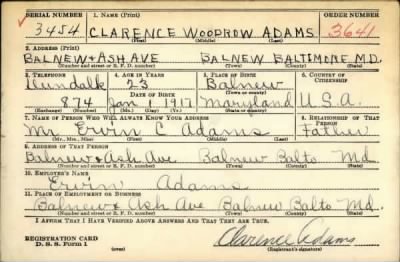 SERIAL NUMBER 1. NAME (Print) ORDER NUMBER
3454 CLARENCE WOODROW ADAMS 3641
(First) (Middle) (Last)
2. ADDRESS (Print)
BALNEW & ASH AVE BALNEW BALTIMORE MD.
(Number and street or R. F. D. number) (Town) (County) (State)
3. TELEPHONE 4. AGE IN YEARS 5. PLACE OF BIRTH 6. COUNTRY OF CITIZENSHIP
Dundalk 23 Balnew
(Town or county)
874 Jan 9 1917 Maryland U.S.A.
DATE OF BIRTH
(Exchange) (Number) (Mo.) (Day) (Yr.) (State or country)
7. NAME OF PERSON WHO WILL ALWAYS KNOW YOUR ADDRESS 8. RELATIONSHIP OF THAT PERSON
Mr. Ervin C Adams Father
(Mr., Mrs., Miss) (First) (Middle) (Last)
9. ADDRESS OF THAT PERSON
Balnew & Ash Ave Balnew Balto Md
(Number and street or R. F. D. number) (Town) (County) (State)
10. EMPLOYER'S NAME
Ervin Adams
11. PLACE OF EMPLOYMENT OR BUSINESS
Balnew & Ash Ave Balnew Balto Md.
(Number and street or R. F. D. number) (Town) (County) (State)
I AFFIRM THAT I HAVE VERIFIED ABOVE ANSWERS AND THAT THEY ARE TRUE.
REGISTRATION CARD
D. S. S. Form 1
Clarence Adams
(Registrant's signature)